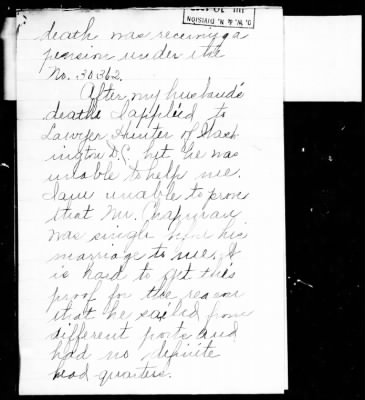 O. W. & N. DIVISION
death was receiving a
pension under the
No. 30362.
After my husband's
death I applied to
Lawyer Hunter of Wash
ington D.C. but he was
unable to help me.
I am unable to prove
that Mr. Chapman
was single when his
marriage to me. It
is hard to get this
proof for the reason
that he sailed from
different ports and
had no definite
head quarters.